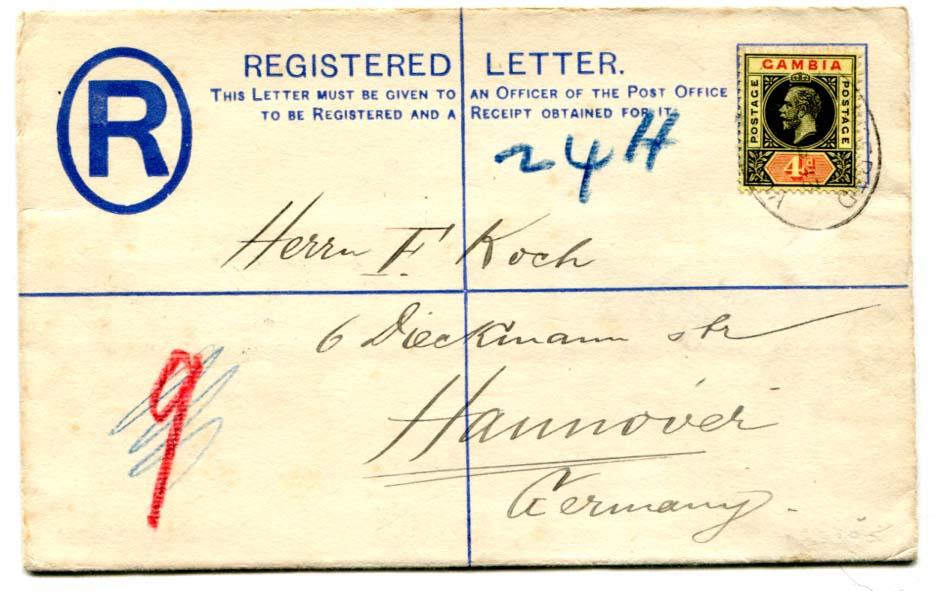 R
REGISTERED LETTER.
THIS LETTER MUST BE GIVEN TO AN OFFICER OF THE POST OFFICE
TO BE REGISTERED AND A RECEIPT OBTAINED FOR IT.
GAMBIA
POSTAGE
POSTAGE
4d
24H
Herrn F. Koch
6 Dieckmann str
Hannover
Germany.
9